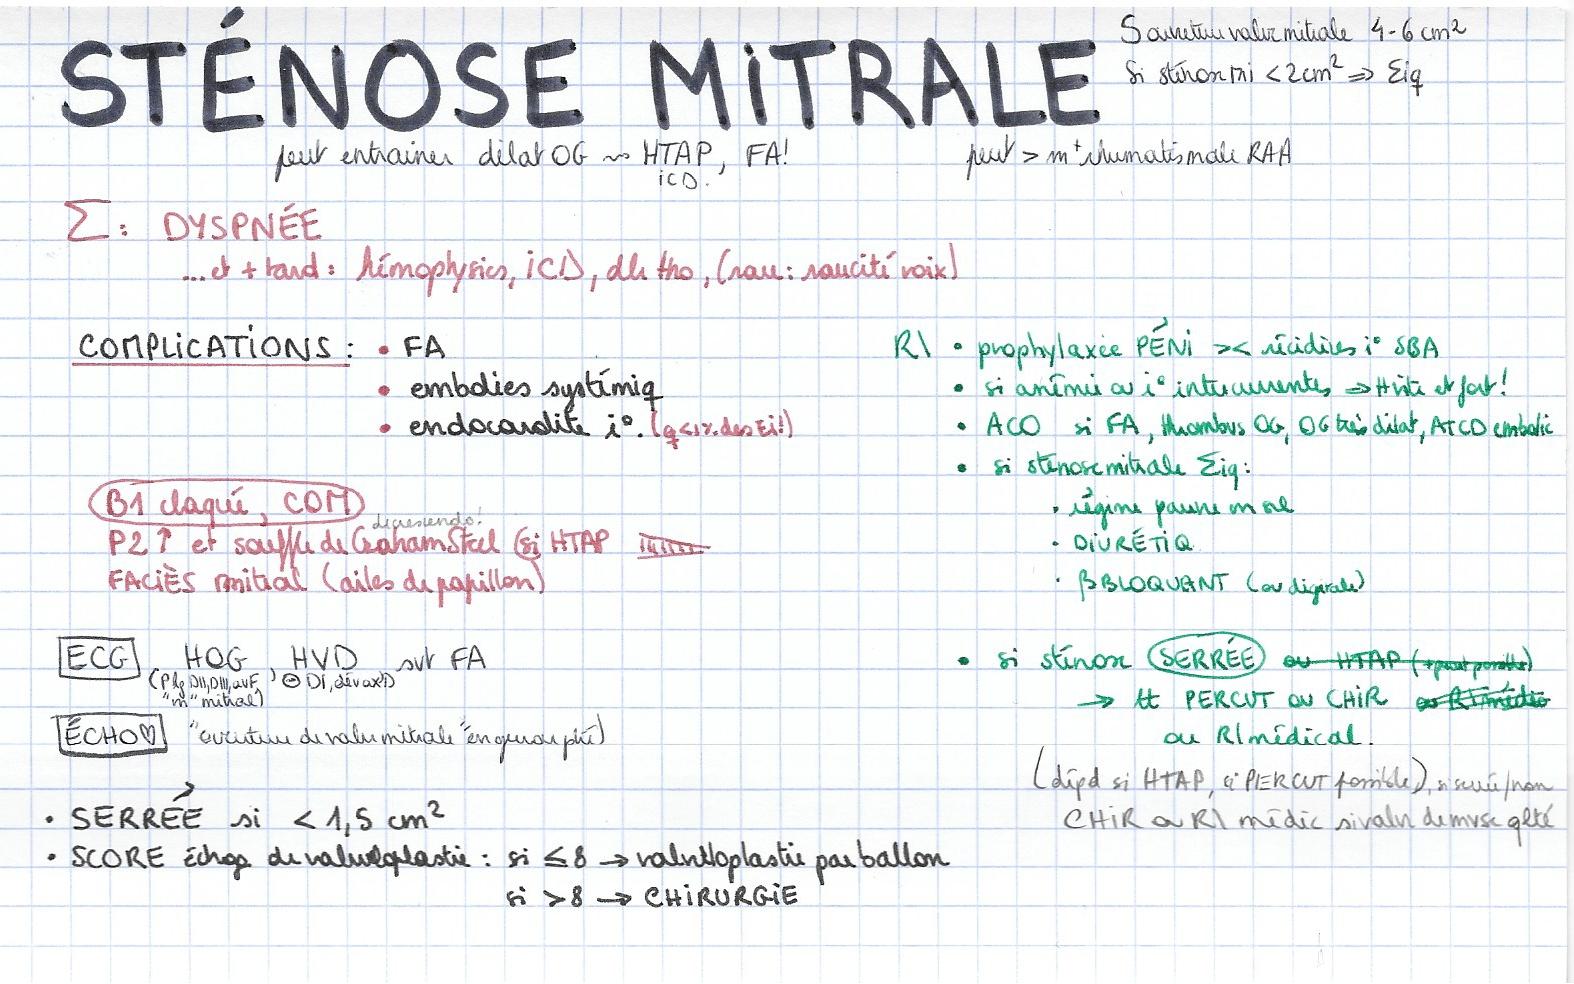 STÉNOSE MiTRALE
S ouverture valve mitrale 4-6 cm²
Si sténose mi < 2cm² => Σiq
peut entrainer dilat OG ~> HTAP, FA!
iCD.
peut > m⁺ rhumatismale RAA
Σ : DYSPNÉE
...et + tard : hémophysies, iCD, dlr tho, (rare : raucité voix)
COMPLiCATiONS : • FA
• embolies systémiq
• endocardite i°. (q<1% des Ei!)
B1 claqué, COM
decrescendo!
P2↑ et souffle de Graham Steel (si HTAP
FACiÈS mitral (ailes de papillon)
ECG HOG, HVD, svt FA
(P lg DII, DIII, avF ⊖ DI, dév axD
"m" mitral)
ÉCHO♡ "ouverture de valve mitrale "en genou plié)
• SERRÉE si < 1,5 cm²
• SCORE échog de valvuloplastie : si ≤ 8 → valvuloplastie par ballon
si > 8 → CHiRURGiE
R/ • prophylaxie PÉNi >< récidives i° SBA
• si anémie ou i° intercurrentes => tt vite et fort!
• ACO si FA, thrombus OG, OG très dilat, ATCD embolie
• si sténose mitrale Σiq :
• régime pauvre en sel
• DiURÉTiQ
• βBLOQUANT (ou digitale)
• si sténose SERRÉE ou HTAP (+ peut possible)
→ tt PERCUT ou CHiR ou R/ médic
ou R/ médical.
(dépd si HTAP, si PERCUT possible), si serrée/non
CHiR ou R/ médic si valve de mvse qlté